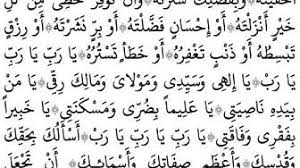 أَنْ تُوَفِّرَ حَظِّي مِنْ كُلِّ
خَيْرٍ أَنْزَلْتَهُ﴿﴾أَوْ إِحْسَانٍ فَضَّلْتَهُ﴿﴾أَوْ بِرٍّ نَشَرْتَهُ﴿﴾أَوْ رِزْقٍ
تَبْسُطُهُ﴿﴾أَوْ ذَنْبٍ تَغْفِرُهُ﴿﴾أَوْ خَطَأٍ تَسْتُرُهُ﴿﴾يَا رَبِّ يَا رَبِّ
يَا رَبِّ﴿﴾يَا اِلٰهِى وَسَيِّدِى وَمَوْلاٰىَ وَمَالِكَ رِقِّى﴿﴾يَا مَنْ
بِيَدِهِ نَاصِيَتِى﴿﴾يَا عَلِيماً بِضُرِّى وَمَسْكَنَتِى﴿﴾يَا خَبِيراً
بِفَقْرِى وَفَاقَتِى﴿﴾يَا رَبِّ يَا رَبِّ يَا رَبِّ﴿﴾أَسْأَلُكَ بِحَقِّكَ
وَقُدْسِكَ﴿﴾وَأَعْظَمِ صِفَاتِكَ وَأَسْمَائِكَ﴿﴾أَنْ تَجْعَلَ